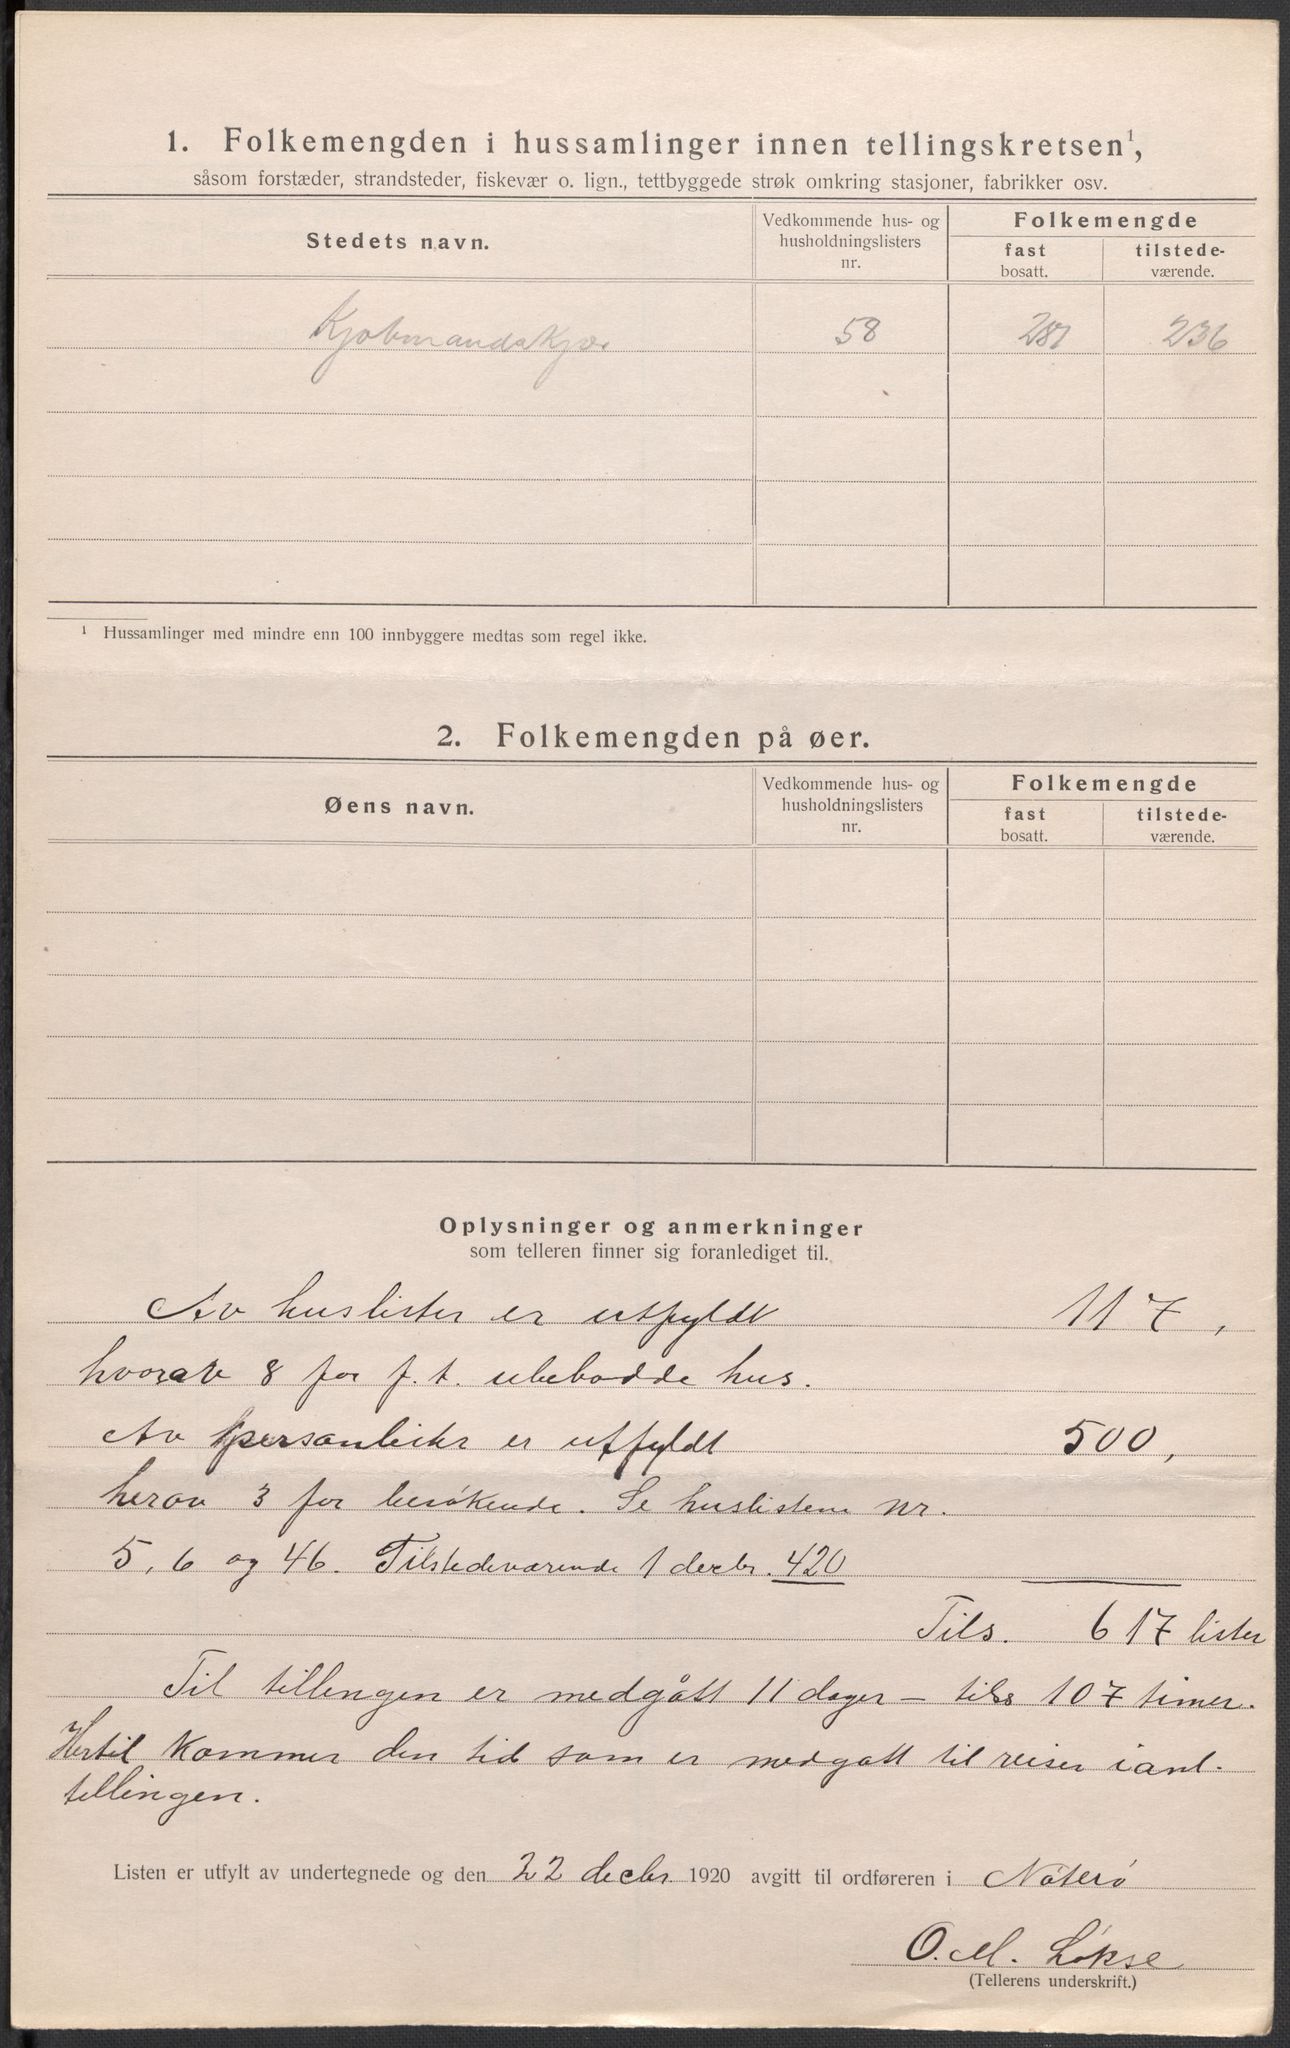 1. Folkemengden i hussamlinger innen tellingskretsen¹,
såsom forstæder, strandsteder, fiskevær o. lign., tettbyggede strøk omkring stasjoner, fabrikker osv.
Stedets navn.
Vedkommende hus- og husholdningslisters nr.
Folkemengde
fast bosatt.
tilstede-værende.
Kjøbmandskjær 58 287 236
¹ Hussamlinger med mindre enn 100 innbyggere medtas som regel ikke.
2. Folkemengden på øer.
Øens navn.
Vedkommende hus- og husholdningslisters nr.
Folkemengde
fast bosatt.
tilstede-værende.
Oplysninger og anmerkninger
som telleren finner sig foranlediget til.
Av huslister er utfyldt 117,
hvorav 8 for f. t. ubebodde hus.
Av personlister er utfyldt 500,
herav 3 for besøkende. Se huslistene nr.
5, 6 og 46. Tilstedeværende 1 decbr. 420
Tils. 617 lister
Til tellingen er medgått 11 dager – tils 107 timer.
Hertil kommer den tid som er medgått til reiser i anl.
tellingen.
Listen er utfylt av undertegnede og den 22 decbr 1920 avgitt til ordføreren i Nøterø
O. M. Løkse
(Tellerens underskrift.)